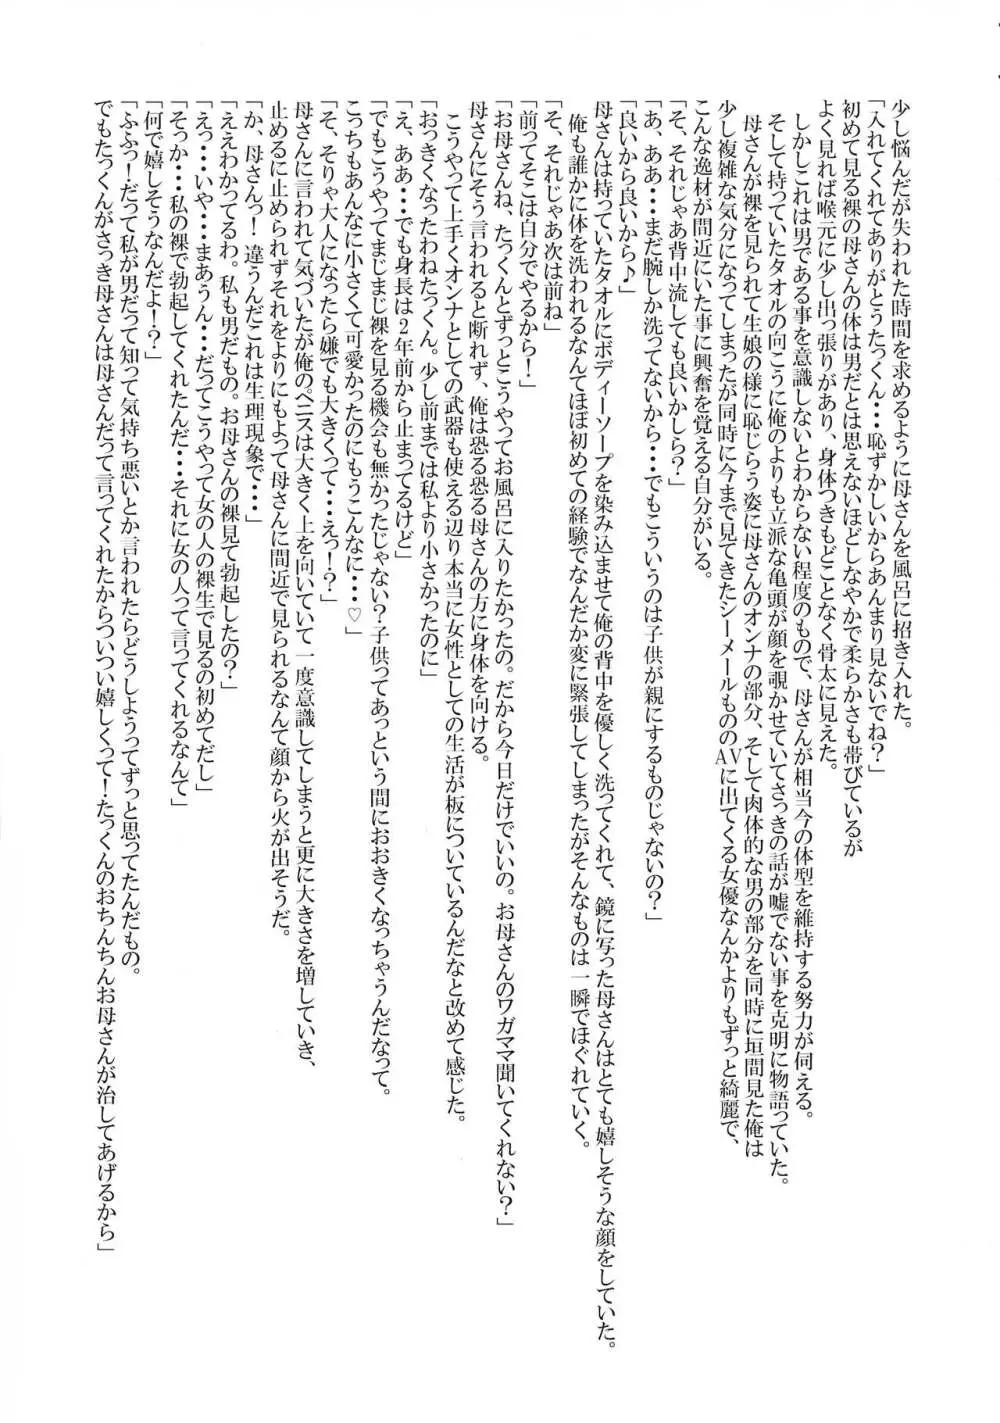 少し悩んだが失われた時間を求めるように母さんを風呂に招き入れた。
「入れてくれてありがとうたっくん・・・恥ずかしいからあんまり見ないでね？」
初めて見る裸の母さんの体は男だとは思えないほどしなやかで柔らかさも帯びているが
よく見れば喉元に少し出っ張りがあり、身体つきもどことなく骨太に見えた。
しかしこれは男である事を意識しないとわからない程度のもので、母さんが相当今の体型を維持する努力が伺える。
そして持っていたタオルの向こうに俺のよりも立派な亀頭が顔を覗かせていてさっきの話が嘘でない事を克明に物語っていた。
母さんが裸を見られて生娘の様に恥じらう姿に母さんのオンナの部分、そして肉体的な男の部分を同時に垣間見た俺は
少し複雑な気分になってしまったが同時に今まで見てきたシーメールもののAVに出てくる女優なんかよりもずっと綺麗で、
こんな逸材が間近にいた事に興奮を覚える自分がいる。
「そ、それじゃあ背中流しても良いかしら？」
「あ、ああ・・・まだ腕しか洗ってないから・・・でもこういうのは子供が親にするものじゃないの？」
「良いから良いから♪」
母さんは持っていたタオルにボディーソープを染み込ませて俺の背中を優しく洗ってくれて、鏡に写った母さんはとても嬉しそうな顔をしていた。
俺も誰かに体を洗われるなんてほぼ初めての経験でなんだか変に緊張してしまったがそんなものは一瞬でほぐれていく。
「そ、それじゃあ次は前ね」
「前ってそこは自分でやるから！」
「お母さんね、たっくんとずっとこうやってお風呂に入りたかったの。だから今日だけでいいの。お母さんのワガママ聞いてくれない？」
母さんにそう言われると断れず、俺は恐る恐る母さんの方に身体を向ける。
こうやって上手くオンナとしての武器も使える辺り本当に女性としての生活が板についているんだなと改めて感じた。
「おっきくなったわねたっくん。少し前までは私より小さかったのに」
「え、ああ・・・でも身長は２年前から止まってるけど」
「でもこうやってまじまじ裸を見る機会も無かったじゃない？子供ってあっという間におおきくなっちゃうんだなって。
こっちもあんなに小さくて可愛かったのにもうこんなに・・・♡」
「そ、そりゃ大人になったら嫌でも大きくって・・・えっ！？」
母さんに言われて気づいたが俺のペニスは大きく上を向いていて一度意識してしまうと更に大きさを増していき、
止めるに止められずそれをよりにもよって母さんに間近で見られるなんて顔から火が出そうだ。
「か、母さんっ！違うんだこれは生理現象で・・・」
「ええわかってるわ。私も男だもの。お母さんの裸見て勃起したの？」
「えっ・・・いや・・・まあうん・・・だってこうやって女の人の裸生で見るの初めてだし」
「そっか・・・私の裸で勃起してくれたんだ・・・それに女の人って言ってくれるなんて」
「何で嬉しそうなんだよ！？」
「ふふっ！だって私が男だって知って気持ち悪いとか言われたらどうしようってずっと思ってたんだもの。
でもたっくんがさっき母さんは母さんだって言ってくれたからついつい嬉しくって！たっくんのおちんちんお母さんが治してあげるから」